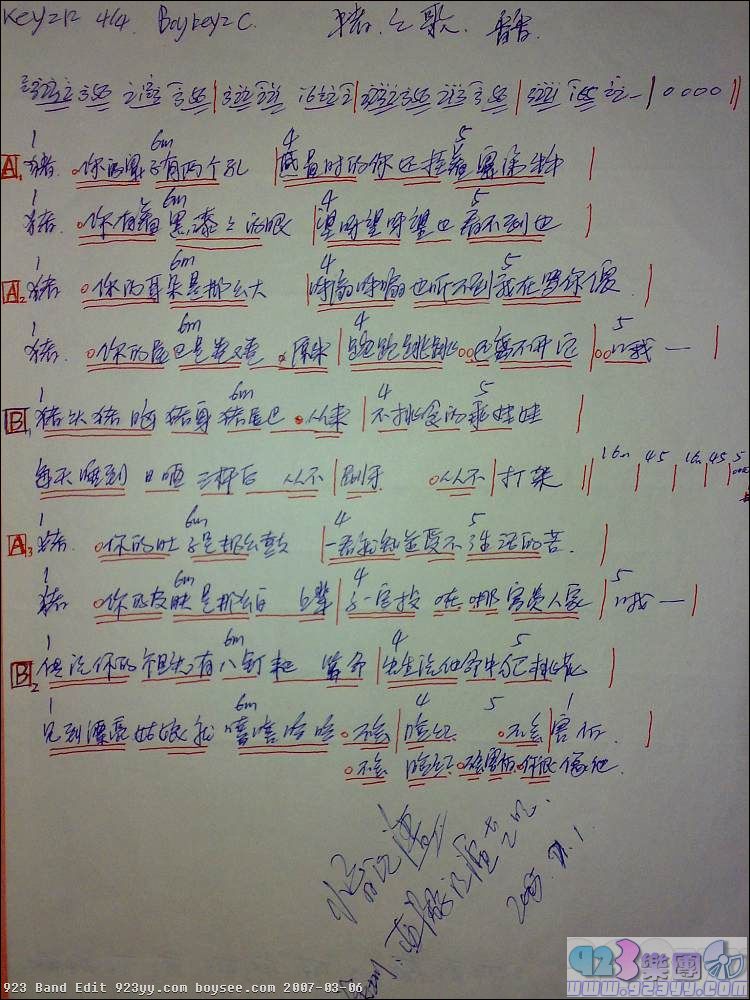 4/4 Boy key=C. 猪之歌. 香香.
| 0 0 0 0 ||
1 6m 4 5
A1 猪 你的鼻子有两个孔 | 感冒时的你还挂着鼻涕牛牛 |
1 6m 4 5
猪. 你有着黑漆漆的眼 | 望呀望呀望也看不到边 |
1 6m 4 5
A2 猪 你的耳朵是那么大 | 呼扇呼扇也听不到我在骂你傻 |
1 6m 4 5
猪. 你的尾巴是卷又卷. 原来 | 跑跑跳跳 还离不开它 |
1 6m 4 5
B1 猪头猪脑猪身猪尾巴 从来 | 不挑食的乖娃娃
每天睡到日晒三杆后 从不 | 刷牙 从不 | 打架 || 16m | 45 | 16m 45 | 5
1 6m 4 5
A3 猪. 你的肚子是那么鼓 | 一看就知道受不了生活的苦. |
1 6m 4 5
猪 你的皮肤是那么白 上辈 | 子一定投在那富贵人家 |
1 6m 4 5
B2 传说你的祖先有八钉耙 算命 | 先生说他命中犯桃花 |
1 6m 4 5 1
见到漂亮姑娘就嘻嘻哈哈 不会 | 脸红 不会 | 害怕. |
不会 脸红 不会害怕 你很像他.
923樂團
www.923yy.com
923 Band Edit 923yy.com boysee.com 2007-03-06